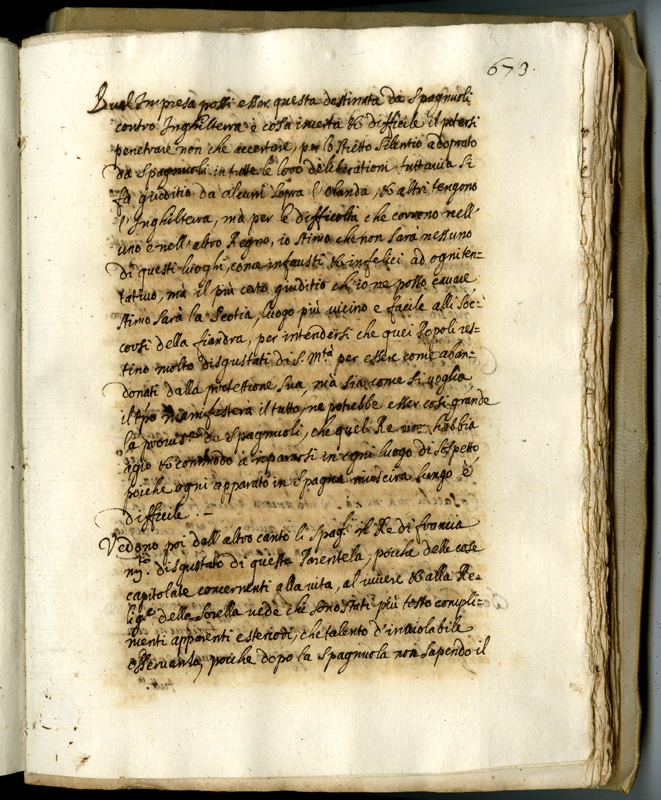 673.
Qual Impresa possi esser questa destinata da Spagnuoli
contro Inghilterra è cosa incerta et difficile il potersi
penetrare non che accertare, per lo stretto silentio adoprato
da Spagnuoli in tutte le loro deliberationi tuttauia si
fa giuditio da alcuni sopra l'Olanda, et altri tengono
l'Inghilterra, mà per le difficoltà che corrono nell'
uno e nell'altro Regno, io stimo che non sarà nessuno
di questi luoghi, come infausti et infelici ad ogni ten-
tatiuo, mà il più certo giuditio ch'io ne posso cauare
stimo sarà la Scotia, luogo più uicino e facile alli soc-
corsi della fiandra, per intendersi che quei Popoli res-
tino molto disgustati di S. Mtà per essere come aban-
donati dalla protettione sua, mà sia come si uoglia
il tpo manifesterà il tutto, ne potrebbe esser così grande
la da Spagnuoli, che quel Re non habbia
agio et commodo à ripararsi in ogni luogo di sospetto
poiche ogni apparato in Spagna riuscirà lungo è
difficile. -
Vedono poi dall'altro canto li Spagli il Re di francia
disgustato di questa Parentela, poiche delle cose
capitolate concernenti alla uita, al uiuere et alla Re-
ligne della sorella uede che sono stati più tosto compli-
menti apparenti esteriori, che talento d'inuiolabile
osseruanza, poiche dopo la Spagnuola non sapendo il